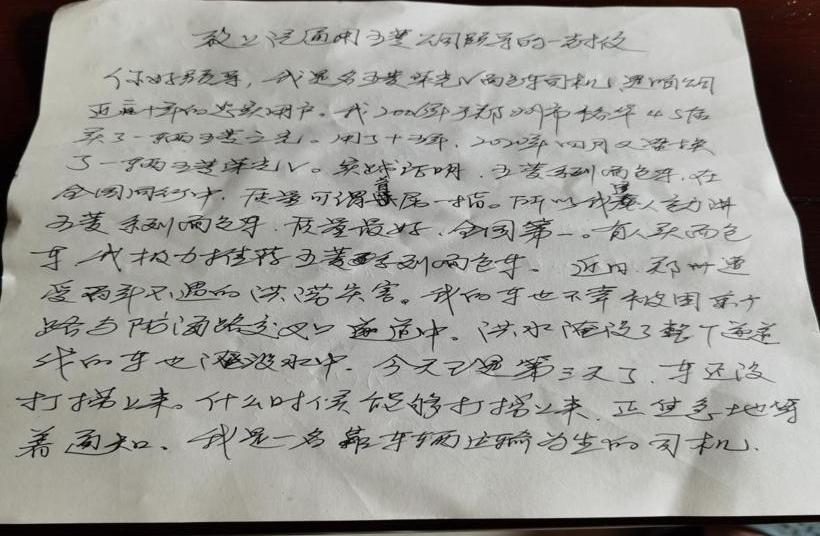 致上汽通用五菱公司领导的一封信
你好领导，我是名五菱荣光V面包车司机，是贵公司
近二十年的忠实用户。我200年于郑州市 4S店
买了一辆五菱之光。用了十三年，2020年四月又替换
了一辆五菱荣光V。实践证明，五菱系列面包车，在
全国同行中，质量可谓首屈一指。所以我逢人主动讲
五菱系列面包车，质量最好，全国第一。有人买面包
车，我极力推荐五菱系列面包车。近日，郑州遭
受百年不遇的洪涝灾害。我的车也不幸被困京广
路与陇海路交叉口隧道中。洪水淹没了整个隧道
我的车也淹没水中。今天已是第三天了，车还没
打捞上来。什么时候能够打捞上来，正焦急地等
着通知。我是一名靠车辆运输为生的司机.